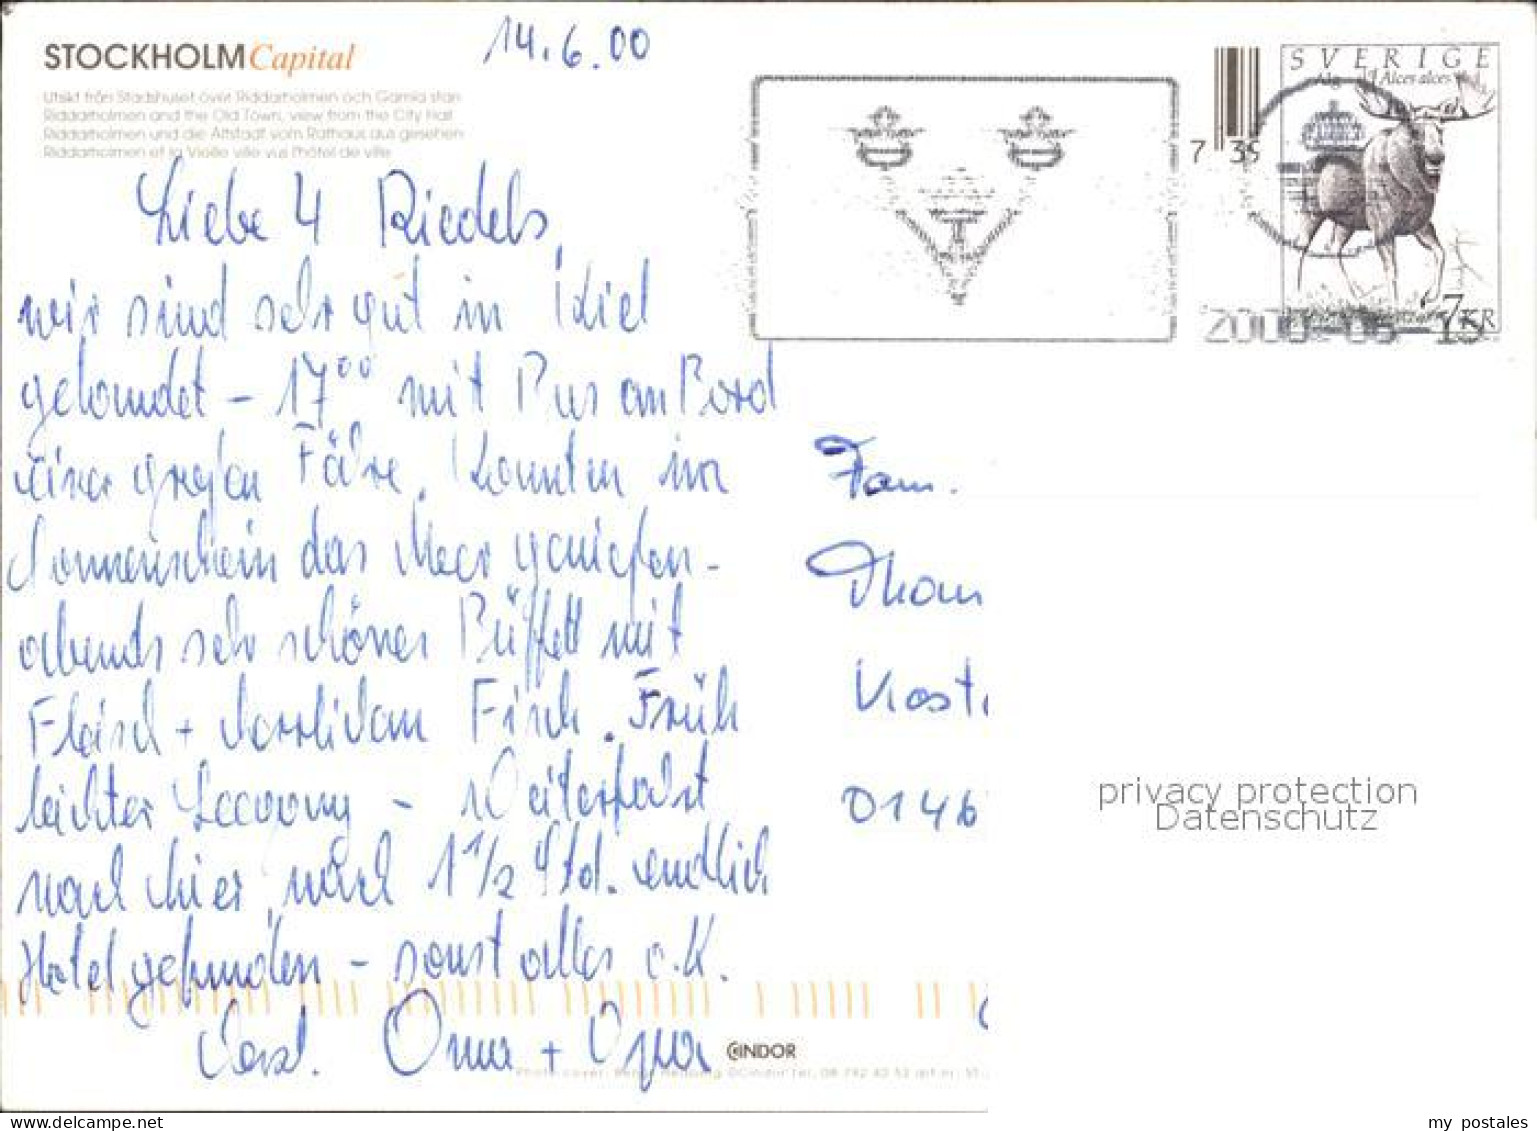 STOCKHOLM Capital
14.6.00
Utsikt från Stadshuset över Riddarholmen och Gamla stan
Riddarholmen and the Old Town, view from the City Hall
Riddarholmen und die Altstadt vom Rathaus aus gesehen
Riddarholmen et la Vieille ville vus l'hôtel de ville
SVERIGE
Älg Alces alces
7 KR
2000-06-15
Liebe 4 Riedels,
wir sind sehr gut in Kiel
gelandet – 17⁰⁰ mit Bus an Bord
einer großen Fähre. Konnten im
Sonnenschein das Meer genießen –
abends sehr schönes Büffett mit
Fleisch + Fisch. Früh
leichter – Weiterfahrt
nach hier, nach 1 1/2 Std. endlich
Hotel gefunden – sonst alles o.K.
Herzl. Oma + Opa
Fam.
Thom
Kast
0146
CINDOR
privacy protection
Datenschutz
my postales